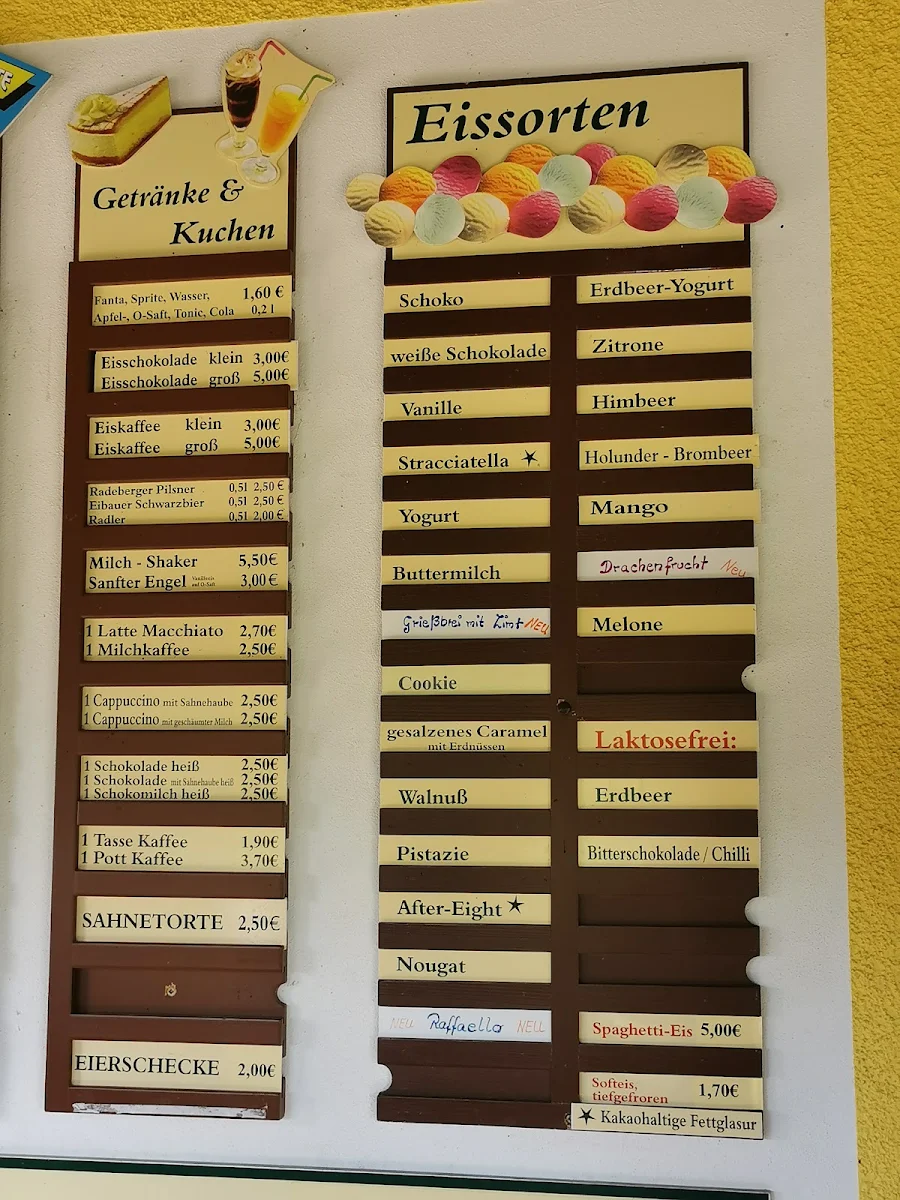 Getränke &
Kuchen
Fanta, Sprite, Wasser, 1,60 €
Apfel-, O-Saft, Tonic, Cola 0,2 l
Eisschokolade klein 3,00€
Eisschokolade groß 5,00€
Eiskaffee klein 3,00€
Eiskaffee groß 5,00€
Radeberger Pilsner 0,5l 2,50 €
Eibauer Schwarzbier 0,5l 2,50 €
Radler 0,5l 2,00 €
Milch - Shaker 5,50€
Sanfter Engel Vanilleeis und O-Saft 3,00€
1 Latte Macchiato 2,70€
1 Milchkaffee 2,50€
1 Cappuccino mit Sahnehaube 2,50€
1 Cappuccino mit geschäumter Milch 2,50€
1 Schokolade heiß 2,50€
1 Schokolade mit Sahnehaube heiß 2,50€
1 Schokomilch heiß 2,50€
1 Tasse Kaffee 1,90€
1 Pott Kaffee 3,70€
SAHNETORTE 2,50€
EIERSCHECKE 2,00€
Eissorten
Schoko
weiße Schokolade
Vanille
Stracciatella ★
Yogurt
Buttermilch
Grießbrei mit Zimt NEU
Cookie
gesalzenes Caramel
mit Erdnüssen
Walnuß
Pistazie
After-Eight ★
Nougat
NEU Raffaello NEU
Erdbeer-Yogurt
Zitrone
Himbeer
Holunder - Brombeer
Mango
Drachenfrucht Neu
Melone
Laktosefrei:
Erdbeer
Bitterschokolade / Chilli
Spaghetti-Eis 5,00€
Softeis,
tiefgefroren 1,70€
★ Kakaohaltige Fettglasur